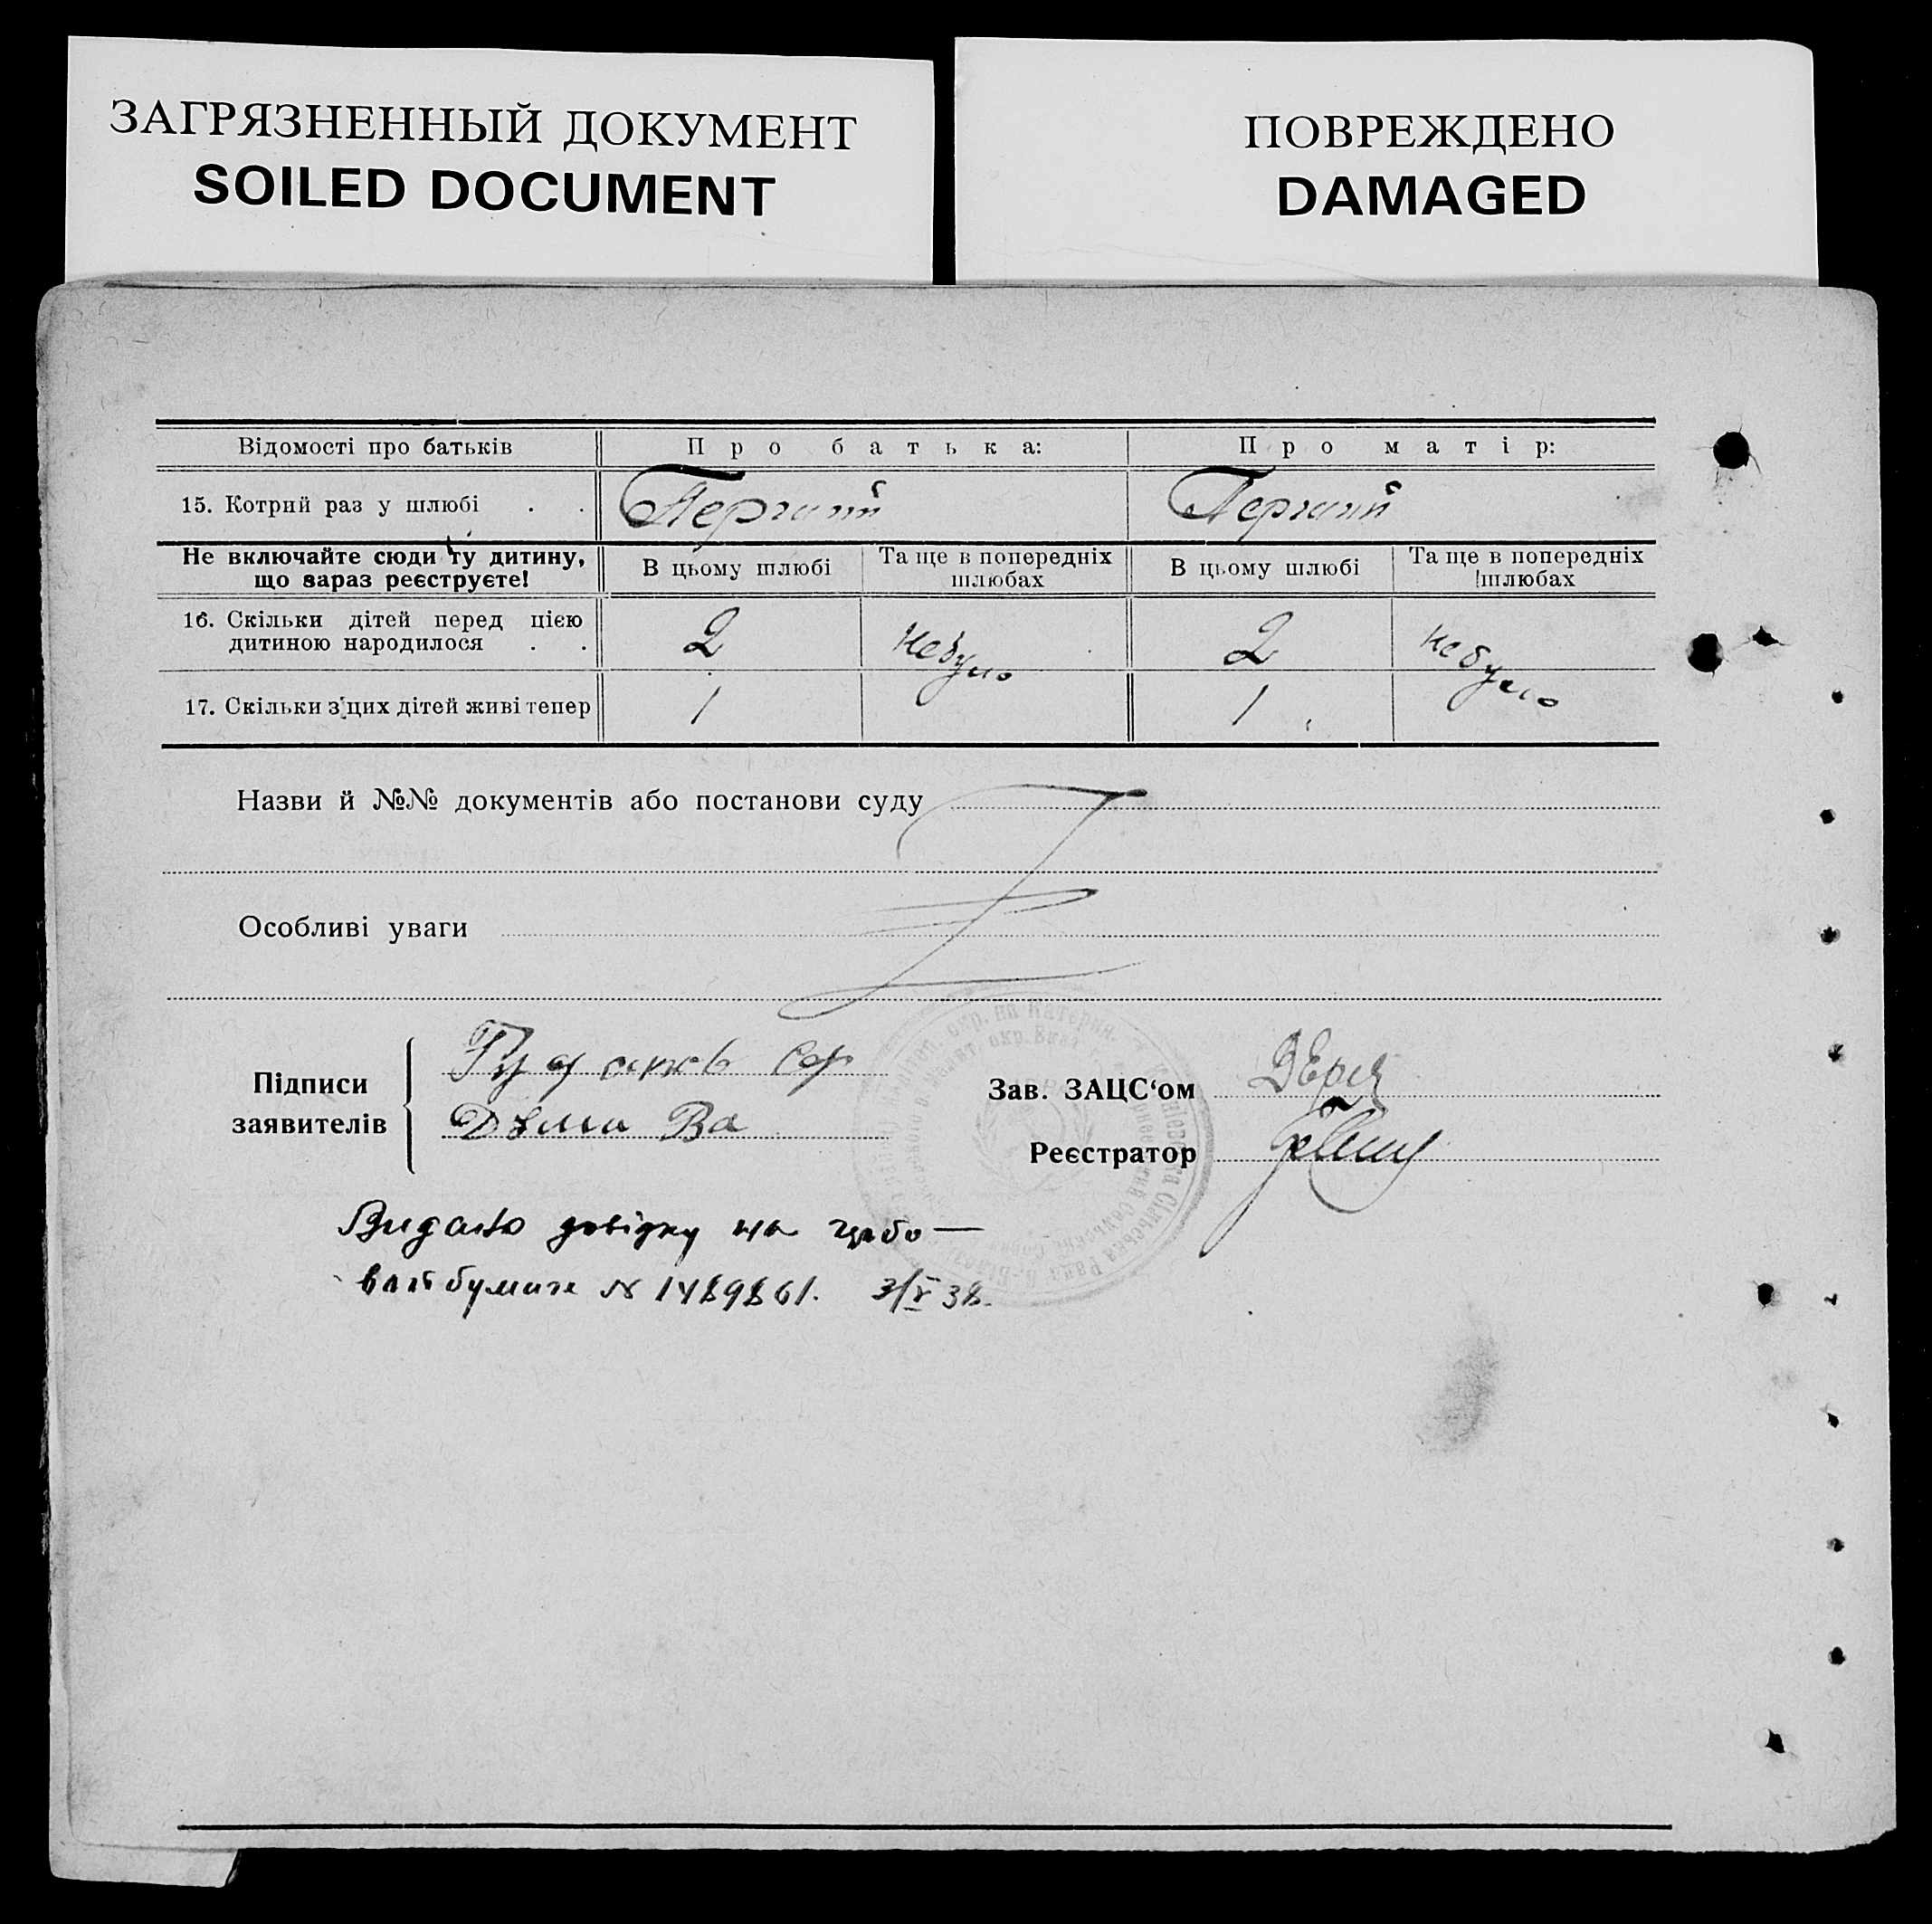 ЗАГРЯЗНЕННЫЙ ДОКУМЕНТ
SOILED DOCUMENT
ПОВРЕЖДЕНО
DAMAGED
Відомості про батьків
Про батька:
Про матір:
15. Котрий раз у шлюбі . .
Перший
Перший
Не включайте сюди ту дитину,
що зараз реєструєте!
В цьому шлюбі
Та ще в попередніх
шлюбах
В цьому шлюбі
Та ще в попередніх
шлюбах
16. Скільки дітей перед цією
дитиною народилося . .
2
небуло
2
небуло
17. Скільки з цих дітей живі тепер
1
1
Назви й №№ документів або постанови суду
Особливі уваги
Підписи
заявителів
Дума Ва
Зав. ЗАЦС‘ом
Реєстратор
Видано довідку на гербо—
вой бумаге N 1489861. 3/V 38.